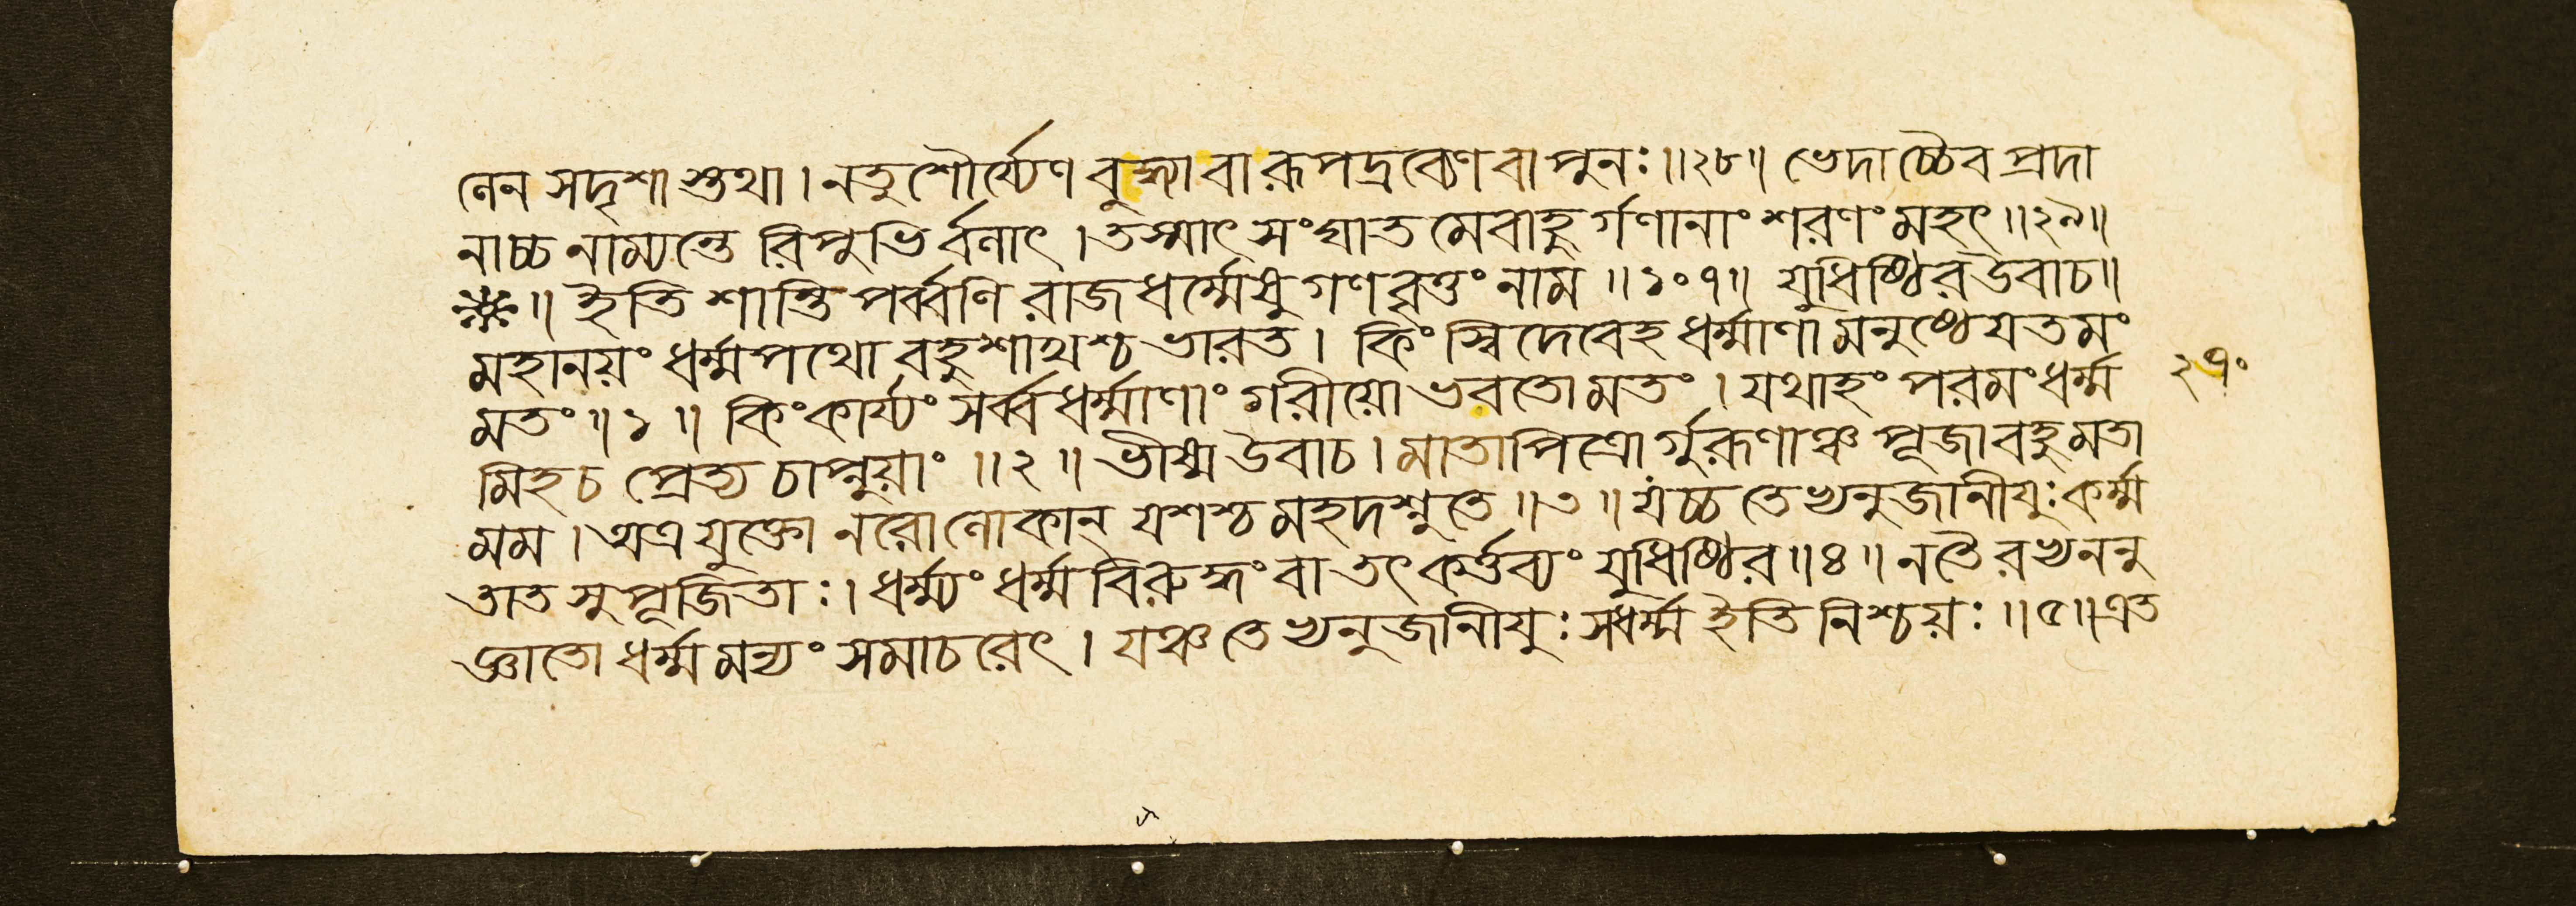 লেন সদৃশাস্তথা । নতু শৌর্য্যেণ বুদ্ধ্যা বা রূপদ্রব্যেণ বা পুনঃ ॥ ২৮ ॥ ভেদাচ্চৈব প্রদা
নাচ্চ নাম্যন্তে রিপুভির্বলাৎ । তস্মাৎ সংঘাতমেবাহুর্গণানাং শরণং মহৎ ॥ ২৯ ॥
॥ ইতি শান্তিপর্ব্বণি রাজধর্ম্মেষু গণবৃত্তং নাম ॥ ১০৭ ॥ যুধিষ্ঠির উবাচ ॥
মহানয়ং ধর্ম্মপথো বহুশাখশ্চ ভারত । কিং স্বিদেবেহ ধর্ম্মাণামনুষ্ঠেযতমং
মতং ॥ ১ ॥ কিং কার্য্যং সর্ব্বধর্ম্মাণাং গরীয়ো ভবতো মতং । যথাহং পরমং ধর্ম্ম
২৭০
মিহ চ প্রেত্য চাপ্নুয়াং ॥ ২ ॥ ভীষ্ম উবাচ । মাতাপিত্রোর্গুরূণাঞ্চ পূজা বহুমতা
মম । অত্র যুক্তো নরো লোকান্ যশশ্চ মহদশ্নুতে ॥ ৩ ॥ যচ্চ তেঽভ্যনুজানীযুঃ কর্ম্ম
তাত সুপূজিতাঃ । ধর্ম্ম্যং ধর্ম্মবিরুদ্ধং বা তৎ কর্ত্তব্যং যুধিষ্ঠির ॥ ৪ ॥ ন তৈরভ্যননু
জ্ঞাতো ধর্ম্মমন্যং সমাচরেৎ । যঞ্চ তেঽভ্যনুজানীযুঃ স ধর্ম্ম ইতি নিশ্চয়ঃ ॥ ৫ ॥ এত